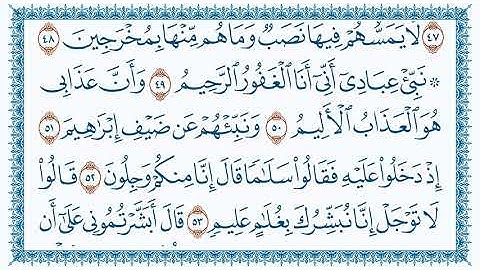 ٤٧ لَا يَمَسُّهُمْ فِيهَا نَصَبٌ وَمَا هُم مِّنْهَا بِمُخْرَجِينَ ٤٨
۞ نَبِّئْ عِبَادِىٓ أَنِّىٓ أَنَا ٱلْغَفُورُ ٱلرَّحِيمُ ٤٩ وَأَنَّ عَذَابِى
هُوَ ٱلْعَذَابُ ٱلْأَلِيمُ ٥٠ وَنَبِّئْهُمْ عَن ضَيْفِ إِبْرَٰهِيمَ ٥١
إِذْ دَخَلُوا۟ عَلَيْهِ فَقَالُوا۟ سَلَٰمًا قَالَ إِنَّا مِنكُمْ وَجِلُونَ ٥٢ قَالُوا۟
لَا تَوْجَلْ إِنَّا نُبَشِّرُكَ بِغُلَٰمٍ عَلِيمٍ ٥٣ قَالَ أَبَشَّرْتُمُونِى عَلَىٰٓ أَن